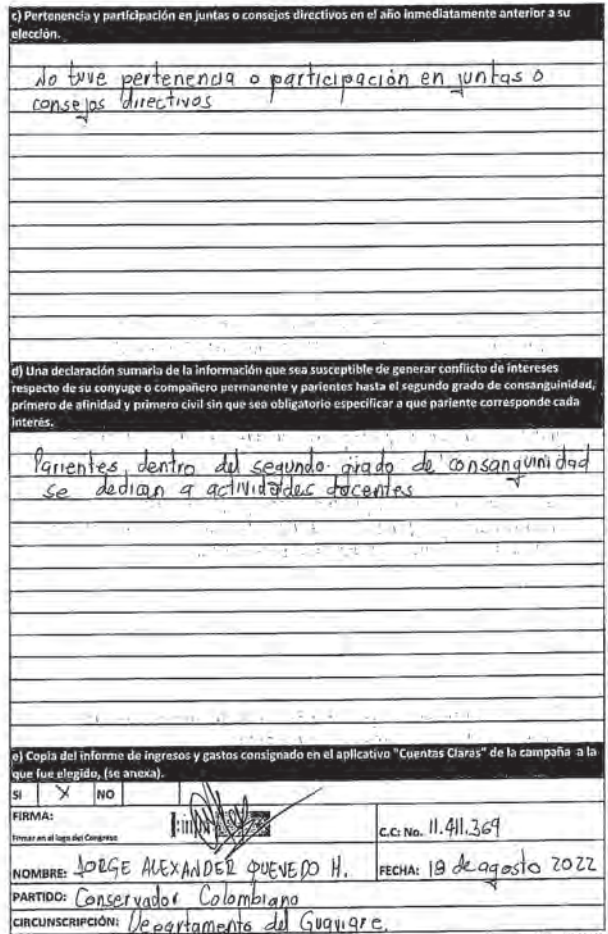 c) Pertenencia y participación en juntas o consejos directivos en el año inmediatamente anterior a su
elección.
No tuve pertenencia o participación en juntas o
consejos directivos
d) Una declaración sumaria de la información que sea susceptible de generar conflicto de intereses
respecto de su conyuge o compañero permanente y parientes hasta el segundo grado de consanguinidad,
primero de afinidad y primero civil sin que sea obligatorio especificar a que pariente corresponde cada
interés.
Parientes dentro del segundo grado de consanguinidad
se dedican a actividades docentes
e) Copia del informe de ingresos y gastos consignado en el aplicativo "Cuentas Claras" de la campaña a la
que fue elegido, (se anexa).
SI X NO
FIRMA:
Firmar en el logo del Congreso
C.C: No. 11.411.369
NOMBRE: JORGE ALEXANDER QUEVEDO H.
FECHA: 18 de agosto 2022
PARTIDO: Conservador Colombiano
CIRCUNSCRIPCIÓN: Departamento del Guaviare.